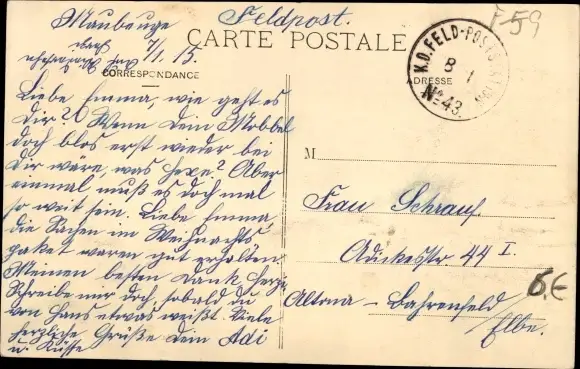 Feldpost.
Maubeuge
7/1. 15.
CARTE POSTALE
CORRESPONDANCE
ADRESSE
K.D. FELD-POST
8 1
No 43
F59
Liebe Emma, wie geht es
Dir? Wenn dein Mobbel
doch blos erst wieder bei
Dir wäre, was Hexe? Aber
einmal muß es doch mal
so weit sein. Liebe Emma,
die Sachen im Weihnachts-
paket waren gut erhalten.
Meinen besten Dank
Schreibe mir doch, sobald du
von Hans etwas weißt. Viele
herzliche Grüße dein Adi
u. Küsse
M
Frau Schrauf
Adickesstr 44 I.
Altona - Bahrenfeld
Elbe.
6,€